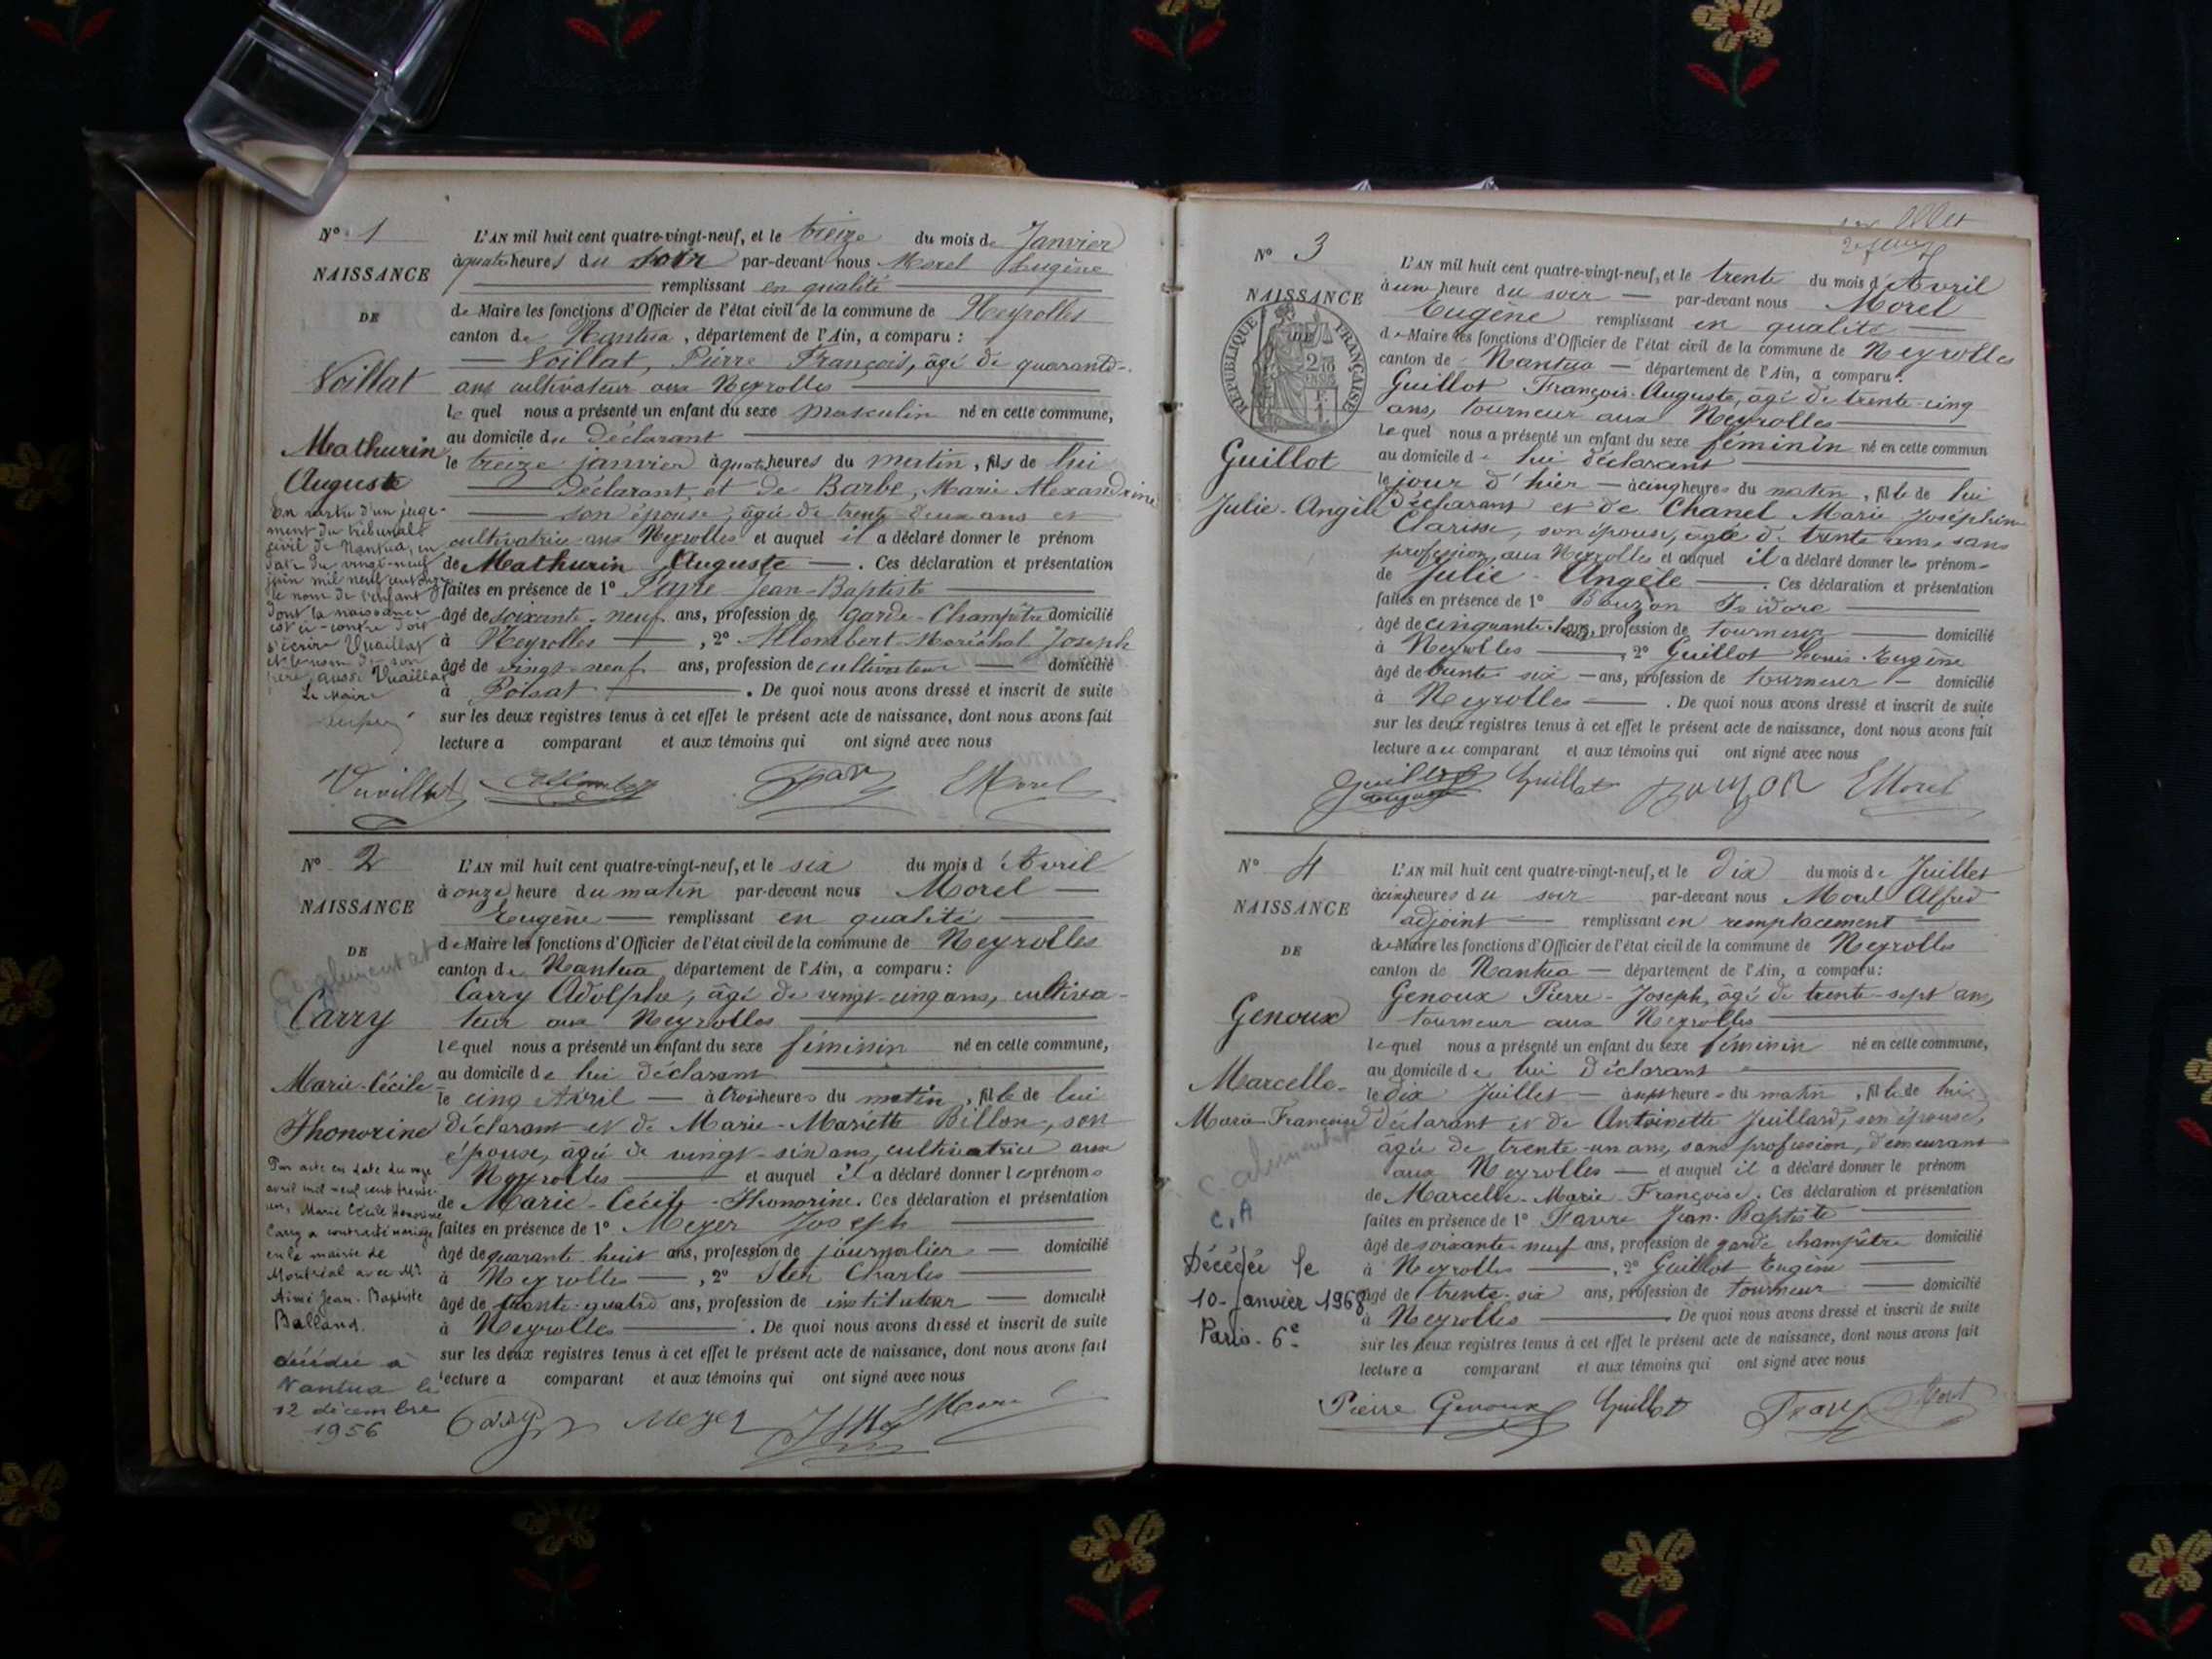 N° 1
NAISSANCE
DE
Voillat
Mathurin
Auguste
En vertu d'un juge-
ment du tribunal
civil de Nantua, en
date du vingt-neuf
juin mil neuf cent
le nom de l'enfant
dont la naissance
est ci-contre doit
s'écrire Vuaillat
et le nom de son
père aussi Vuaillat
Le Maire
L'AN mil huit cent quatre-vingt-neuf, et le treize du mois de Janvier
à quatre heures du soir par-devant nous Morel Eugène
remplissant en qualité
de Maire les fonctions d'Officier de l'état civil de la commune de Neyrolles
canton de Nantua, département de l'Ain, a comparu :
Voillat, Pierre François, âgé de quarante-
ans cultivateur aux Neyrolles
lequel nous a présenté un enfant du sexe masculin né en cette commune,
au domicile du déclarant
le treize janvier à quatre heures du matin, fils de lui
déclarant, et de Barbe, Marie Alexandrine
son épouse, âgée de trente-deux ans et
cultivatrice aux Neyrolles et auquel il a déclaré donner le prénom
de Mathurin Auguste. Ces déclaration et présentation
faites en présence de 1° Favre Jean-Baptiste
âgé de soixante-neuf ans, profession de garde-Champêtre domicilié
à Neyrolles, 2° Allombert-Maréchal Joseph
âgé de vingt-neuf ans, profession de cultivateur domicilié
à Poisat. De quoi nous avons dressé et inscrit de suite
sur les deux registres tenus à cet effet le présent acte de naissance, dont nous avons fait
lecture a comparant et aux témoins qui ont signé avec nous
Vuaillat Allombert Favre EMorel
N° 2
NAISSANCE
DE
Carry
Marie-Cécile
Thonorine
Par acte en date du onze
avril mil neuf cent trente-
un, Marie Cécile Honorine
Carry a contracté mariage
en la mairie de
Montréal avec Mr
Aimé Jean-Baptiste
Balland.
décédée à
Nantua le
12 décembre
1956
L'AN mil huit cent quatre-vingt-neuf, et le six du mois d'Avril
à onze heure du matin par-devant nous Morel
Eugène remplissant en qualité
de Maire les fonctions d'Officier de l'état civil de la commune de Neyrolles
canton de Nantua département de l'Ain, a comparu :
Carry Adolphe, âgé de vingt-cinq ans, cultiva-
teur aux Neyrolles
lequel nous a présenté un enfant du sexe féminin né en cette commune,
au domicile de lui déclarant
le cinq Avril à trois heures du matin, fille de lui
déclarant et de Marie-Mariette Billon, son
épouse, âgée de vingt-six ans, cultivatrice aux
Neyrolles et auquel il a déclaré donner les prénoms
de Marie-Cécile-Thonorine. Ces déclaration et présentation
faites en présence de 1° Meyer Joseph
âgé de quarante-huit ans, profession de journalier domicilié
à Neyrolles, 2° Ster Charles
âgé de trente-quatre ans, profession de instituteur domicilié
à Neyrolles. De quoi nous avons dressé et inscrit de suite
sur les deux registres tenus à cet effet le présent acte de naissance, dont nous avons fait
lecture a comparant et aux témoins qui ont signé avec nous
Carry Meyer EMorel
N° 3
NAISSANCE
DE
REPUBLIQUE FRANÇAISE
Guillot
Julie-Angèle
L'AN mil huit cent quatre-vingt-neuf, et le trente du mois d'Avril
à une heure du soir par-devant nous Morel
Eugène remplissant en qualité
de Maire les fonctions d'Officier de l'état civil de la commune de Neyrolles
canton de Nantua département de l'Ain, a comparu :
Guillot François-Auguste, âgé de trente-cinq
ans, tourneur aux Neyrolles
lequel nous a présenté un enfant du sexe féminin né en cette commun
au domicile de lui déclarant
le jour d'hier à cinq heures du matin, fille de lui
déclarant et de Chanel Marie Joséphine
Clarisse, son épouse, âgée de trente ans, sans
profession, aux Neyrolles et auquel il a déclaré donner les prénom
de Julie-Angèle. Ces déclaration et présentation
faites en présence de 1° Bouzon Isidore
âgé de cinquante ans, profession de tourneur domicilié
à Neyrolles, 2° Guillot Louis-Eugène
âgé de trente-six ans, profession de tourneur domicilié
à Neyrolles. De quoi nous avons dressé et inscrit de suite
sur les deux registres tenus à cet effet le présent acte de naissance, dont nous avons fait
lecture au comparant et aux témoins qui ont signé avec nous
Guillot Guillot Bouzon EMorel
N° 4
NAISSANCE
DE
Genoux
Marcelle-
Marie-Françoise
C.A
Décédée le
10-Janvier 1968
Paris-6e
L'AN mil huit cent quatre-vingt-neuf, et le dix du mois de Juillet
à cinq heures du soir par-devant nous Morel Alfred
adjoint remplissant en remplacement
du Maire les fonctions d'Officier de l'état civil de la commune de Neyrolles
canton de Nantua département de l'Ain, a comparu :
Genoux Pierre-Joseph, âgé de trente-sept ans,
tourneur aux Neyrolles
lequel nous a présenté un enfant du sexe féminin né en cette commune,
au domicile de lui déclarant
le dix Juillet à sept heures du matin, fille de lui
déclarant et de Antoinette Juillard, son épouse,
âgée de trente-un ans, sans profession, demeurant
aux Neyrolles et auquel il a déclaré donner le prénom
de Marcelle-Marie-Françoise. Ces déclaration et présentation
faites en présence de 1° Favre Jean-Baptiste
âgé de soixante-neuf ans, profession de garde champêtre domicilié
à Neyrolles, 2° Guillot Eugène
âgé de trente-six ans, profession de tourneur domicilié
à Neyrolles De quoi nous avons dressé et inscrit de suite
sur les deux registres tenus à cet effet le présent acte de naissance, dont nous avons fait
lecture a comparant et aux témoins qui ont signé avec nous
Pierre Genoux Guillot Favre Morel